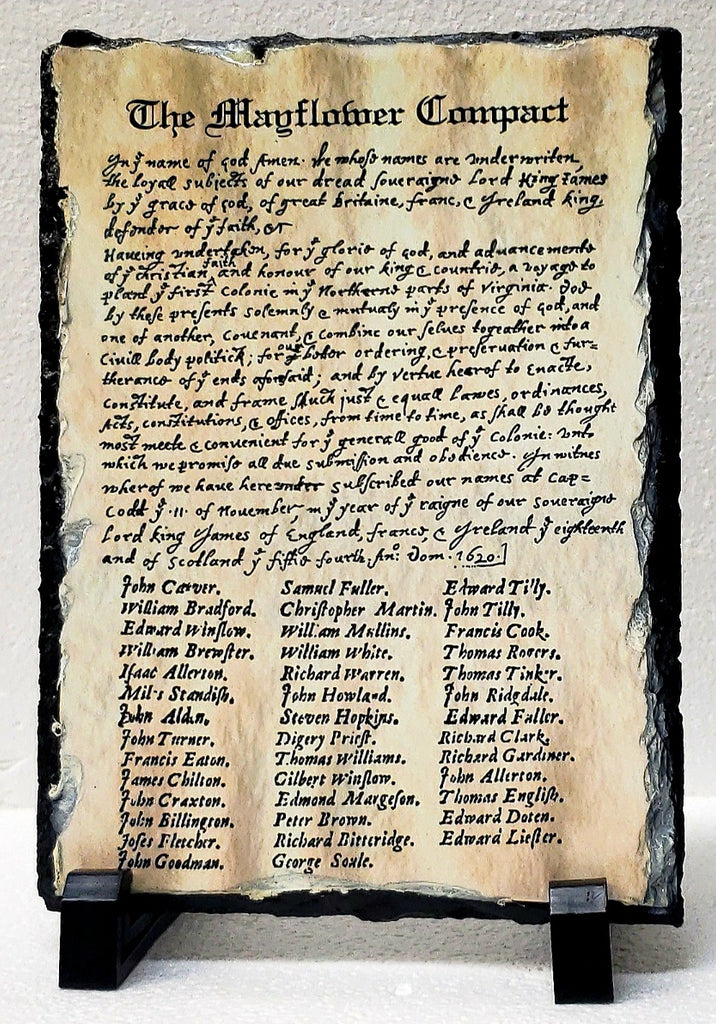 The Mayflower Compact
In yᵉ name of god Amen. We whose names are underwriten,
the loyall subjects of our dread soveraigne Lord King James
by yᵉ grace of god, of great Britaine, franc, & Ireland king,
defender of yᵉ faith, &c
Haveing undertaken, for yᵉ glorie of god, and advancemente
of yᵉ christian faith and honour of our king & countrie, a voyage to
plant yᵉ first colonie in yᵉ Northerne parts of Virginia. Doe
by these presents solemnly & mutualy in yᵉ presence of god, and
one of another, covenant, & combine our selves togeather into a
civill body politick; for our better ordering, & preservation & fur=
therance of yᵉ ends aforesaid; and by vertue hearof to enacte,
constitute, and frame shuch just & equall lawes, ordinances,
Acts, constitutions, & offices, from time to time, as shall be thought
most meete & convenient for yᵉ generall good of yᵉ Colonie: unto
which we promise all due submission and obedience. In witnes
wherof we have hereunder subscribed our names at Cap=
Codd yᵉ ·11· of November, in yᵉ year of yᵉ raigne of our soveraigne
Lord king James of England, france, & Ireland yᵉ eighteenth
and of Scotland yᵉ fiftie fourth. Anº: Dom. 1620.]
John Carver. Samuel Fuller. Edward Tilly.
William Bradford. Christopher Martin. John Tilly.
Edward Winslow. William Mullins. Francis Cook.
William Brewster. William White. Thomas Rogers.
Isaac Allerton. Richard Warren. Thomas Tinker.
Miles Standish. John Howland. John Ridgdale.
John Alden. Steven Hopkins. Edward Fuller.
John Turner. Digery Priest. Richard Clark.
Francis Eaton. Thomas Williams. Richard Gardiner.
James Chilton. Gilbert Winslow. John Allerton.
John Craxton. Edmond Margeson. Thomas English.
John Billington. Peter Brown. Edward Doten.
Joses Fletcher. Richard Bitteridge. Edward Liester.
John Goodman. George Soule.